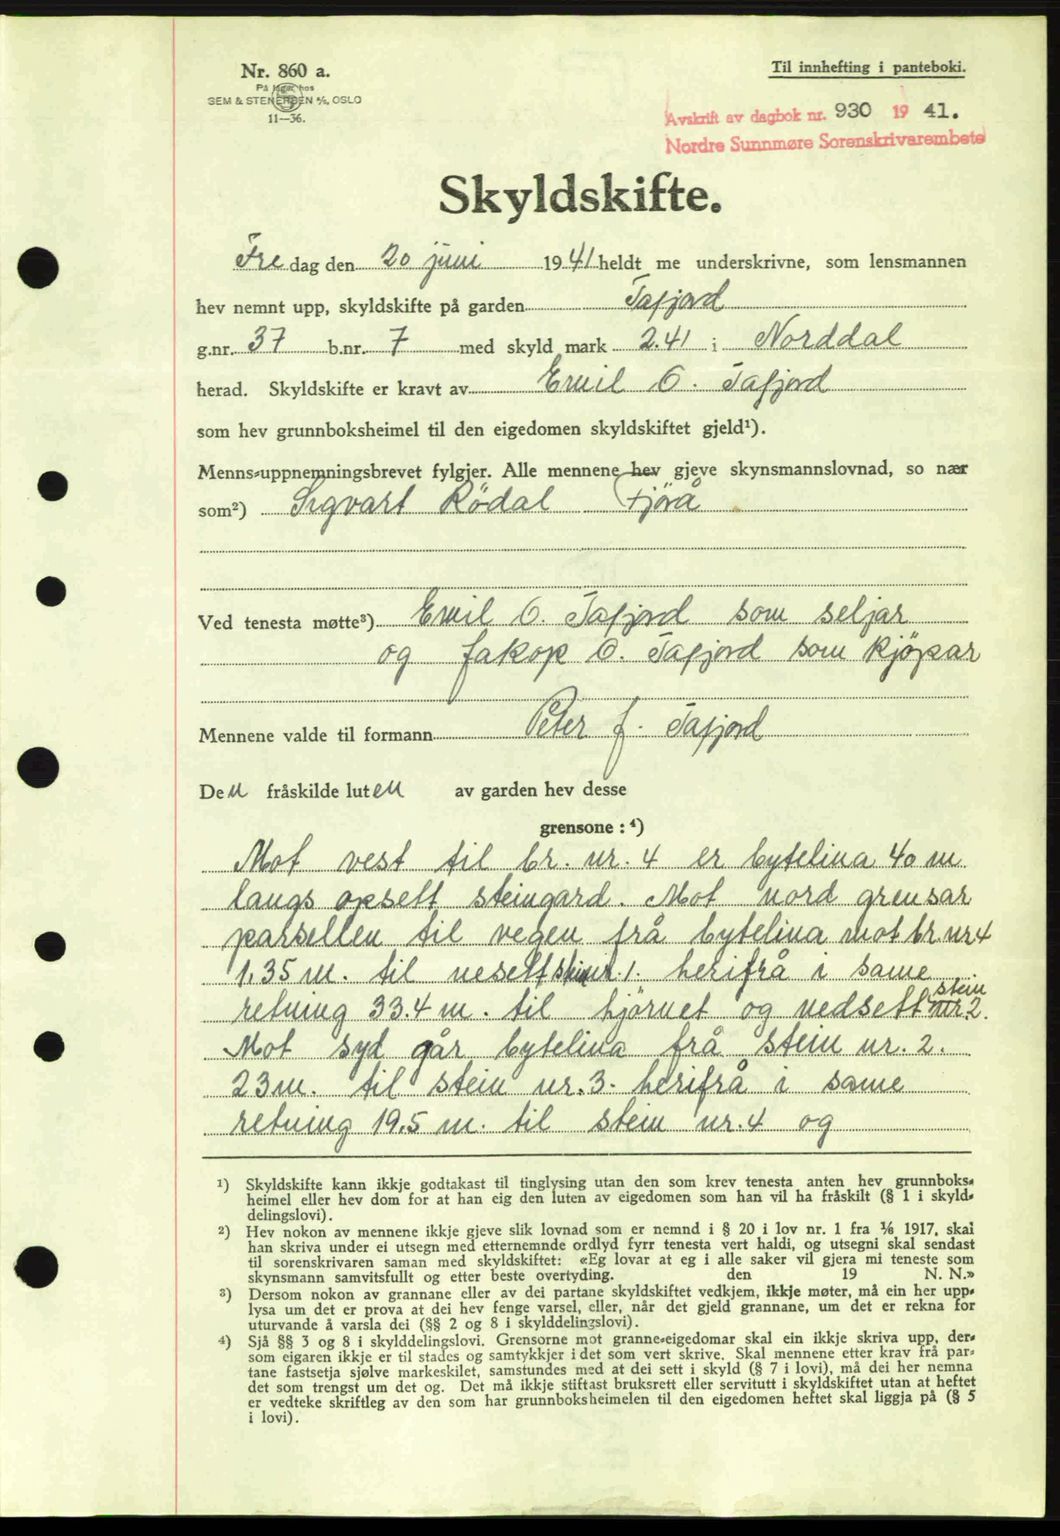 Nr. 860 a.
På lager hos
SEM & STENERSEN A/S, OSLO
11—36.
Til innhefting i panteboki.
Avskrift av dagbok nr. 930 19 41.
Nordre Sunnmøre Sorenskrivarembete
Skyldskifte.
Fre dag den 20 juni 1941 heldt me underskrivne, som lensmannen
hev nemnt upp, skyldskifte på garden Tafjord
g.nr. 37 b.nr. 7 med skyld mark 2.41 i Norddal
herad. Skyldskifte er kravt av Emil O. Tafjord
som hev grunnboksheimel til den eigedomen skyldskiftet gjeld¹).
Menns-uppnemningsbrevet fylgjer. Alle mennene hev gjeve skynsmannslovnad, so nær
som²) Sigvart Rödal Fjörå
Ved tenesta møtte³) Emil O. Tafjord som seljar
og Jakop O. Tafjord som kjöpar
Mennene valde til formann Peter J. Tafjord
Den fråskilde luten av garden hev desse
grensone : ⁴)
Mot vest til br. nr. 4 er bytelina 40 m
langs opsett steingard. Mot nord grensar
parsellen til vegen frå bytelina mot br nr 4
1,35 m. til nesett stein nr. 1. herifrå i same
retning 33.4 m. til hjörnet og nedsett stein nr. 2.
Mot syd går bytelina frå stein nr. 2.
23 m. til stein nr. 3. herifrå i same
retning 19.5 m. til stein nr. 4 og
¹) Skyldskifte kann ikkje godtakast til tinglysing utan den som krev tenesta anten hev grunnboks-
heimel eller hev dom for at han eig den luten av eigedomen som han vil ha fråskilt (§ 1 i skyld-
delingslovi).
²) Hev nokon av mennene ikkje gjeve slik lovnad som er nemnd i § 20 i lov nr. 1 fra 1/6 1917, skal
han skriva under ei utsegn med etternemnde ordlyd fyrr tenesta vert haldi, og utsegni skal sendast
til sorenskrivaren saman med skyldskiftet: «Eg lovar at eg i alle saker vil gjera mi teneste som
skynsmann samvitsfullt og etter beste overtyding. den 19 N. N.»
³) Dersom nokon av grannane eller av dei partane skyldskiftet vedkjem, ikkje møter, må ein her upp-
lysa um det er prova at dei hev fenge varsel, eller, når det gjeld grannane, um det er rekna for
uturvande å varsla dei (§§ 2 og 8 i skylddelingslovi).
⁴) Sjå §§ 3 og 8 i skylddelingslovi. Grensorne mot granne-eigedomar skal ein ikkje skriva upp, der-
som eigaren ikkje er til stades og samtykkjer i det som vert skrive. Skal mennene etter krav frå par-
tane fastsetja sjølve markeskilet, samstundes med at dei sett i skyld (§ 7 i lovi), må dei her nemna
det som trengst um det og. Det må ikkje stiftast bruksrett eller servitutt i skyldskiftet utan at heftet
er vedteke skriftleg av den som har grunnboksheimelen til den eigedomen heftet skal liggja på (§ 5
i lovi).